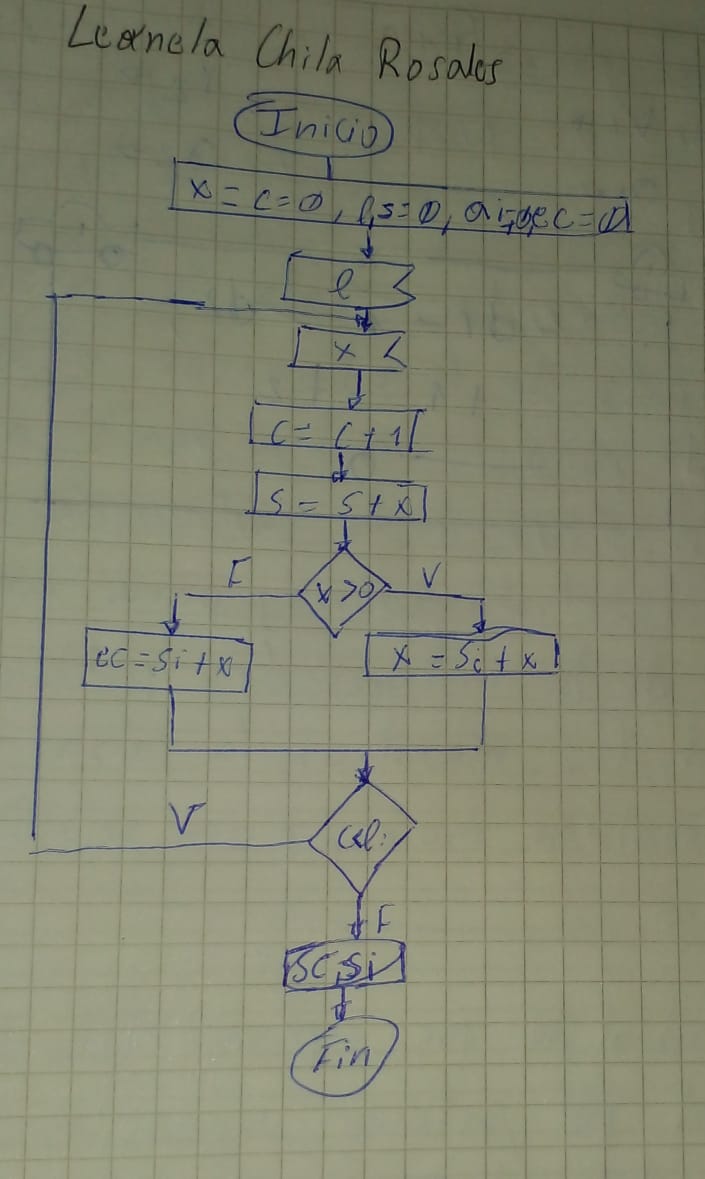 Leanela Chila Rosales
Inicio
x = c=0, l, s=0,
l
x
c = c + 1
s = s + x
F
x >0
V
ec = si + x
x = si + x
V
F
Fin